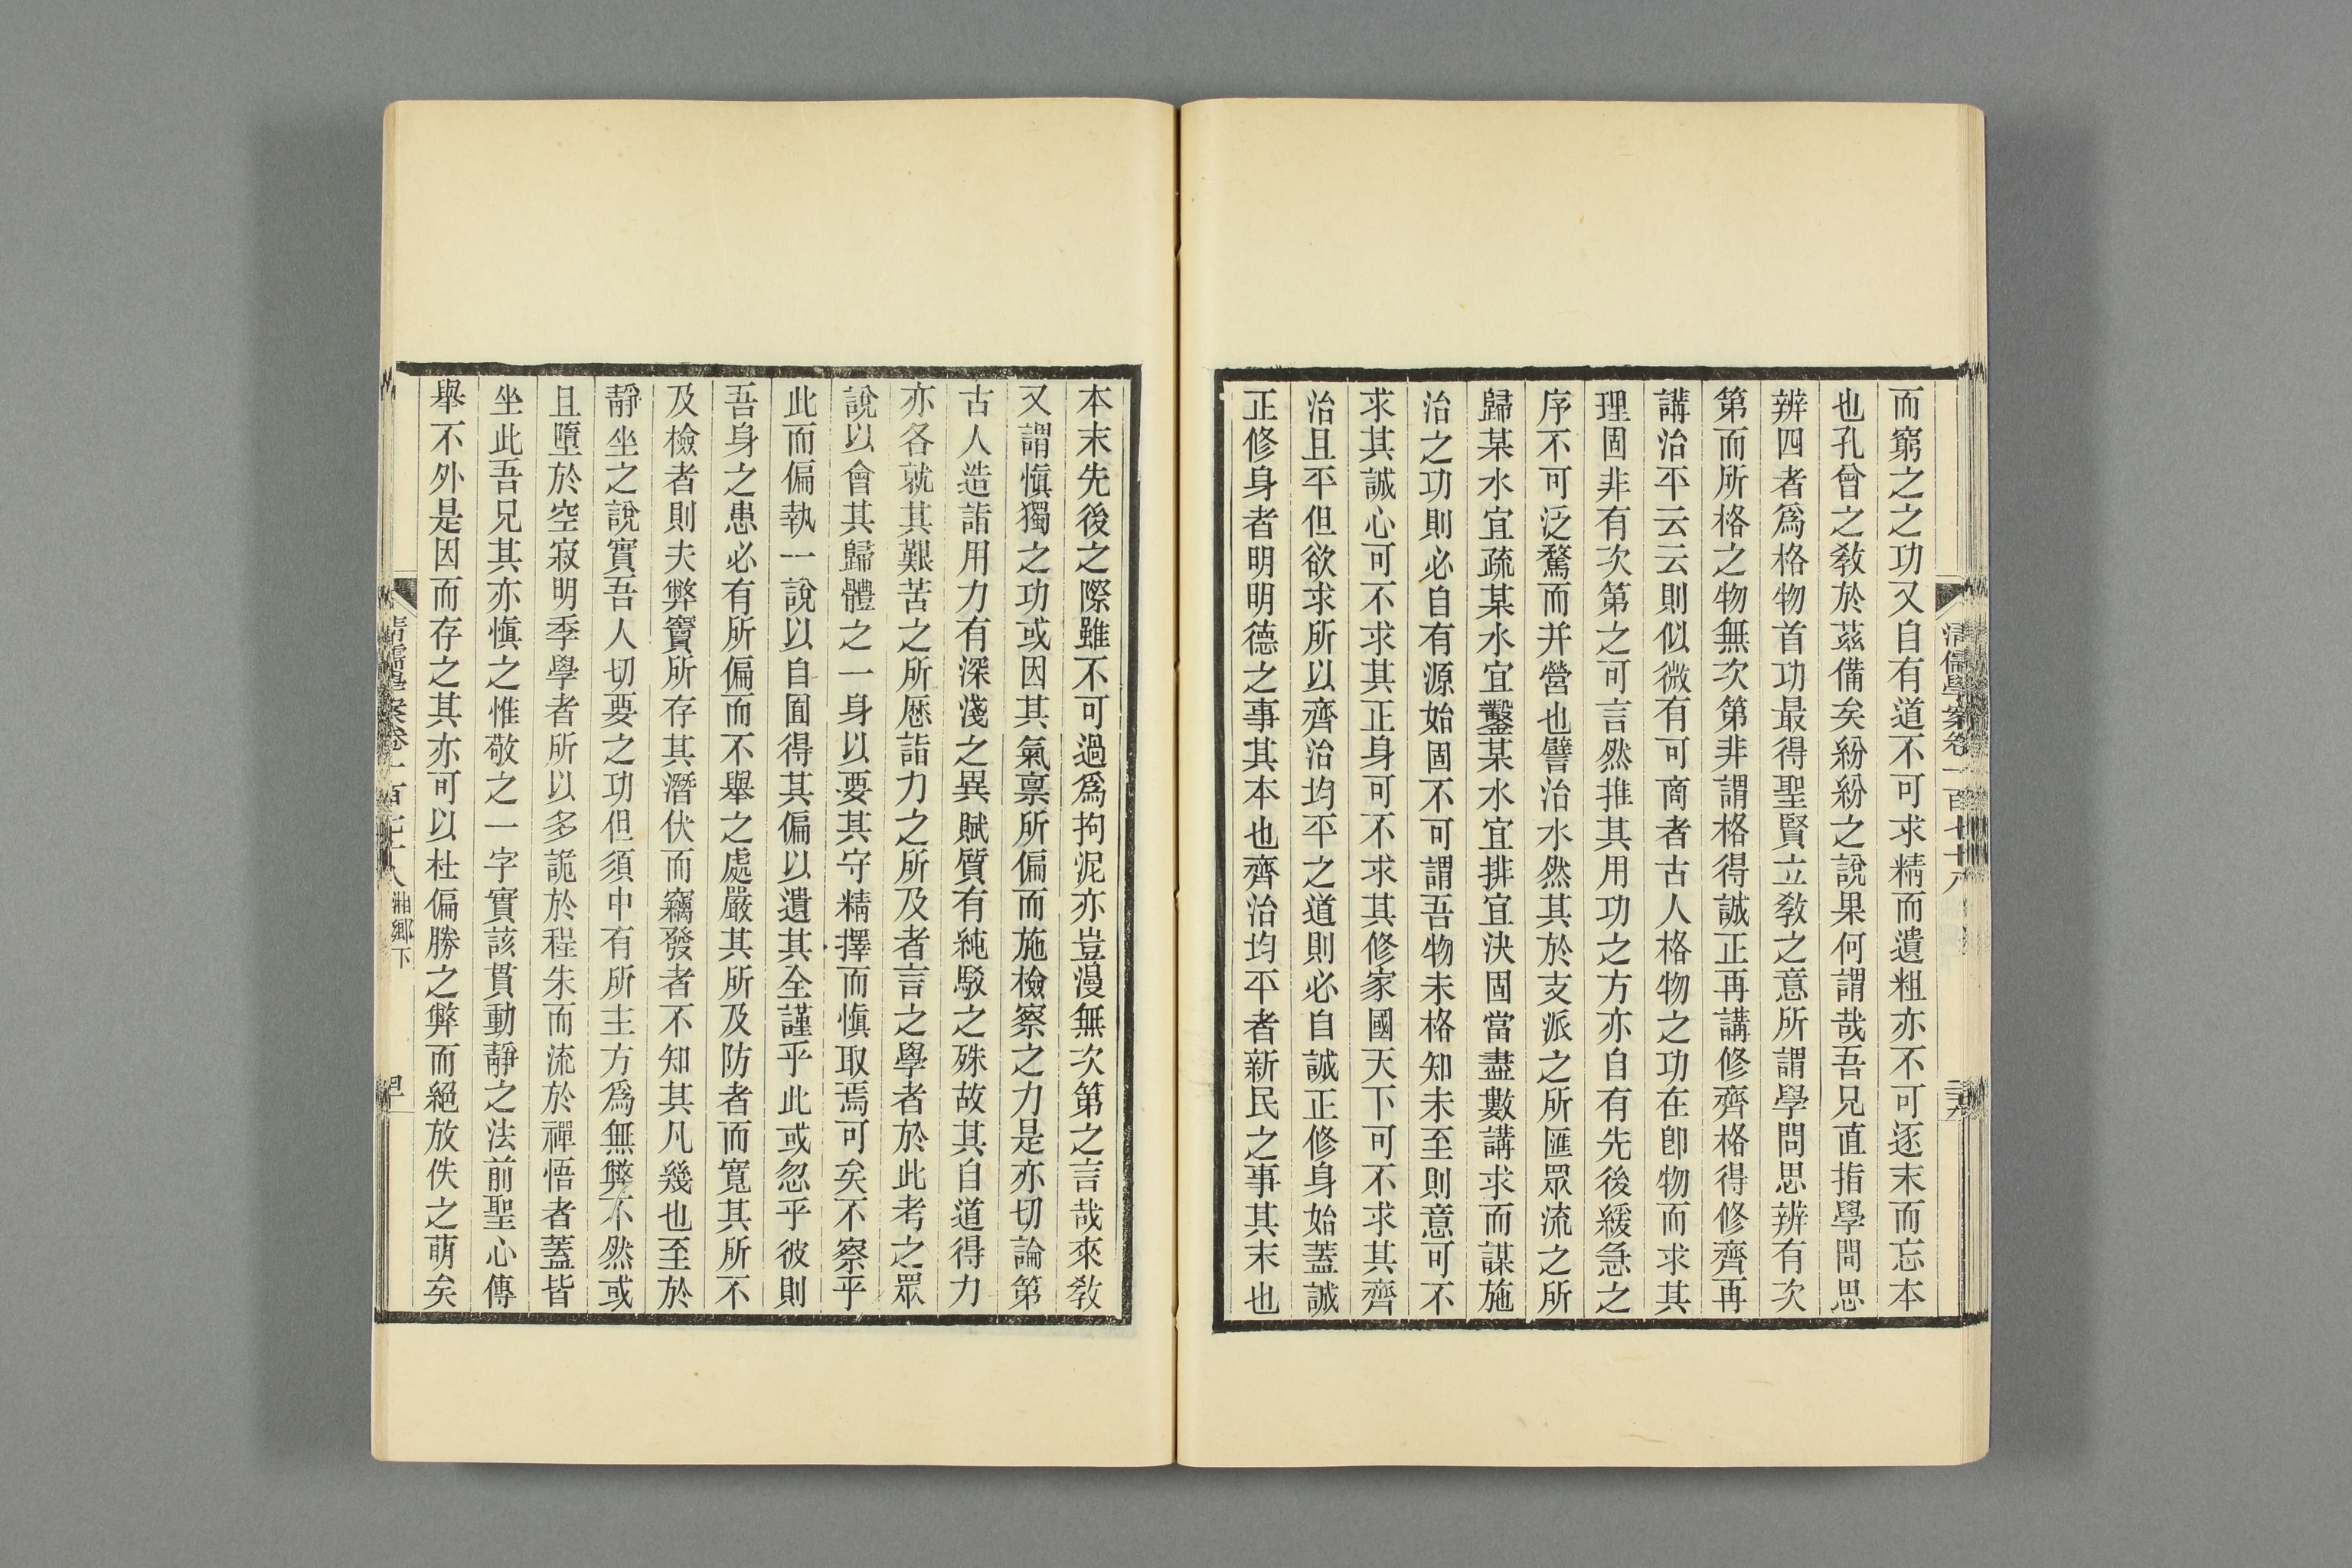 清儒學案卷一百七十八
而窮之之功又自有道不可求精而遺粗亦不可逐末而忘本
也孔曾之敎於茲備矣紛紛之說果何謂哉吾兄直指學問思
辨四者爲格物首功最得聖賢立敎之意所謂學問思辨有次
第而所格之物無次第非謂格得誠正再講修齊格得修齊再
講治平云云則似微有可商者古人格物之功在卽物而求其
理固非有次第之可言然推其用功之方亦自有先後緩急之
序不可泛騖而并營也譬治水然其於支派之所匯眾流之所
歸某水宜疏某水宜鑿某水宜排宜決固當盡數講求而謀施
治之功則必自有源始固不可謂吾物未格知未至則意可不
求其誠心可不求其正身可不求其修家國天下可不求其齊
治且平但欲求所以齊治均平之道則必自誠正修身始蓋誠
正修身者明明德之事其本也齊治均平者新民之事其末也
本末先後之際雖不可過爲拘泥亦豈漫無次第之言哉來敎
又謂愼獨之功或因其氣稟所偏而施檢察之力是亦切論第
古人造詣用力有深淺之異賦質有純駁之殊故其自道得力
亦各就其艱苦之所厯詣力之所及者言之學者於此考之眾
說以會其歸體之一身以要其守精擇而愼取焉可矣不察乎
此而偏執一說以自囿得其偏以遺其全謹乎此或忽乎彼則
吾身之患必有所偏而不舉之處嚴其所及防者而寬其所不
及檢者則夫弊竇所存其潛伏而竊發者不知其凡幾也至於
靜坐之說實吾人切要之功但須中有所主方爲無弊不然或
且墮於空寂明季學者所以多詭於程朱而流於禪悟者蓋皆
坐此吾兄其亦愼之惟敬之一字實該貫動靜之法前聖心傳
舉不外是因而存之其亦可以杜偏勝之弊而絕放佚之萌矣
清儒學案卷一百七十八 湘鄉下